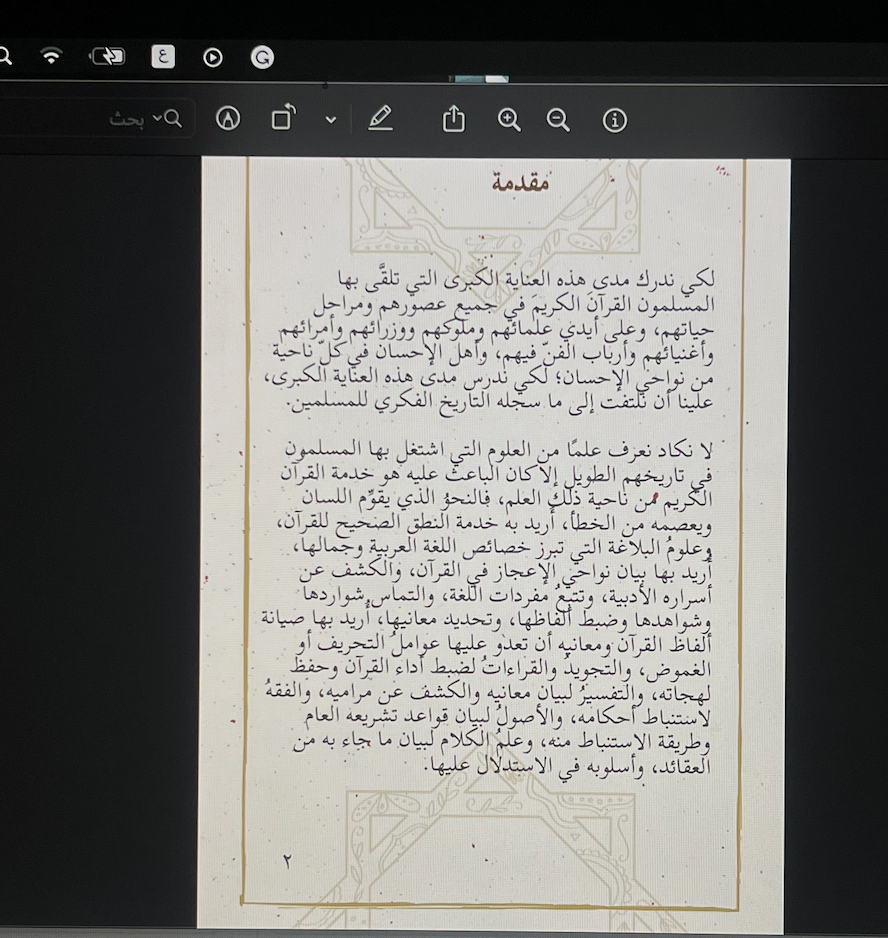 بحث
مقدمة
لكي ندرك مدى هذه العناية الكبرى التي تلقَّى بها
المسلمون القرآنَ الكريمَ في جميع عصورهم ومراحل
حياتهم، وعلى أيدي علمائهم وملوكهم ووزرائهم وأمرائهم
وأغنيائهم وأرباب الفنّ فيهم، وأهل الإحسان في كلّ ناحية
من نواحي الإحسان؛ لكي ندرس مدى هذه العناية الكبرى،
علينا أن نلتفت إلى ما سجله التاريخ الفكري للمسلمين.
لا نكاد نعرف علمًا من العلوم التي اشتغل بها المسلمون
في تاريخهم الطويل إلا كان الباعث عليه هو خدمة القرآن
الكريم من ناحية ذلك العلم، فالنحوُ الذي يقوِّم اللسان
ويعصمه من الخطأ، أُريد به خدمة النطق الصحيح للقرآن،
وعلومُ البلاغة التي تبرز خصائص اللغة العربية وجمالها،
أُريد بها بيان نواحي الإعجاز في القرآن، والكشف عن
أسراره الأدبية، وتتبعُ مفردات اللغة، والتماس شواردها
وشواهدها وضبط ألفاظها، وتحديد معانيها، أُريد بها صيانة
ألفاظ القرآن ومعانيه أن تعدو عليها عواملُ التحريف أو
الغموض، والتجويدُ والقراءاتُ لضبط أداء القرآن وحفظ
لهجاته، والتفسيرُ لبيان معانيه والكشف عن مراميه، والفقهُ
لاستنباط أحكامه، والأصولُ لبيان قواعد تشريعه العام
وطريقة الاستنباط منه، وعلمُ الكلام لبيان ما جاء به من
العقائد، وأسلوبه في الاستدلال عليها.
٢